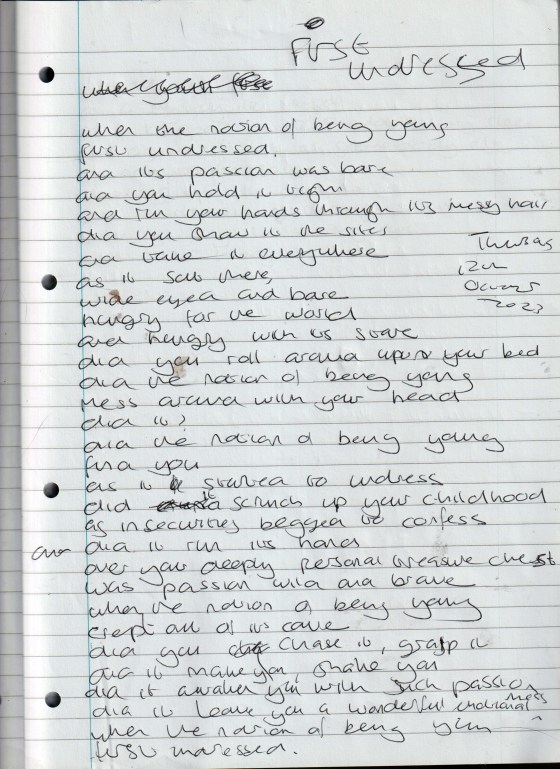 First
undressed
when the notion of being young
first undressed,
and its passion was bare
did you hold it
and run your hands through its messy hair
did you show it the sites
and take it everywhere
as it sat there,
wide eyed and bare
hungry for the world
and hungry with its stare
did you roll around upon your bed
did the notion of being young
mess around with your head
did it?
did the notion of being young
find you
as it started to undress
did it scrunch up your childhood
as insecurities begged to confess
and did it run its hands
over your deeply personal treasure chest
was passion wild and brave
when the notion of being young
crept out of its cave
did you chase it, grasp it
did it make you, shake you
did it awaken you with such passion
did it leave you a wonderful emotional mess
when the notion of being young
first undressed.
Thursday
12th
October
2023